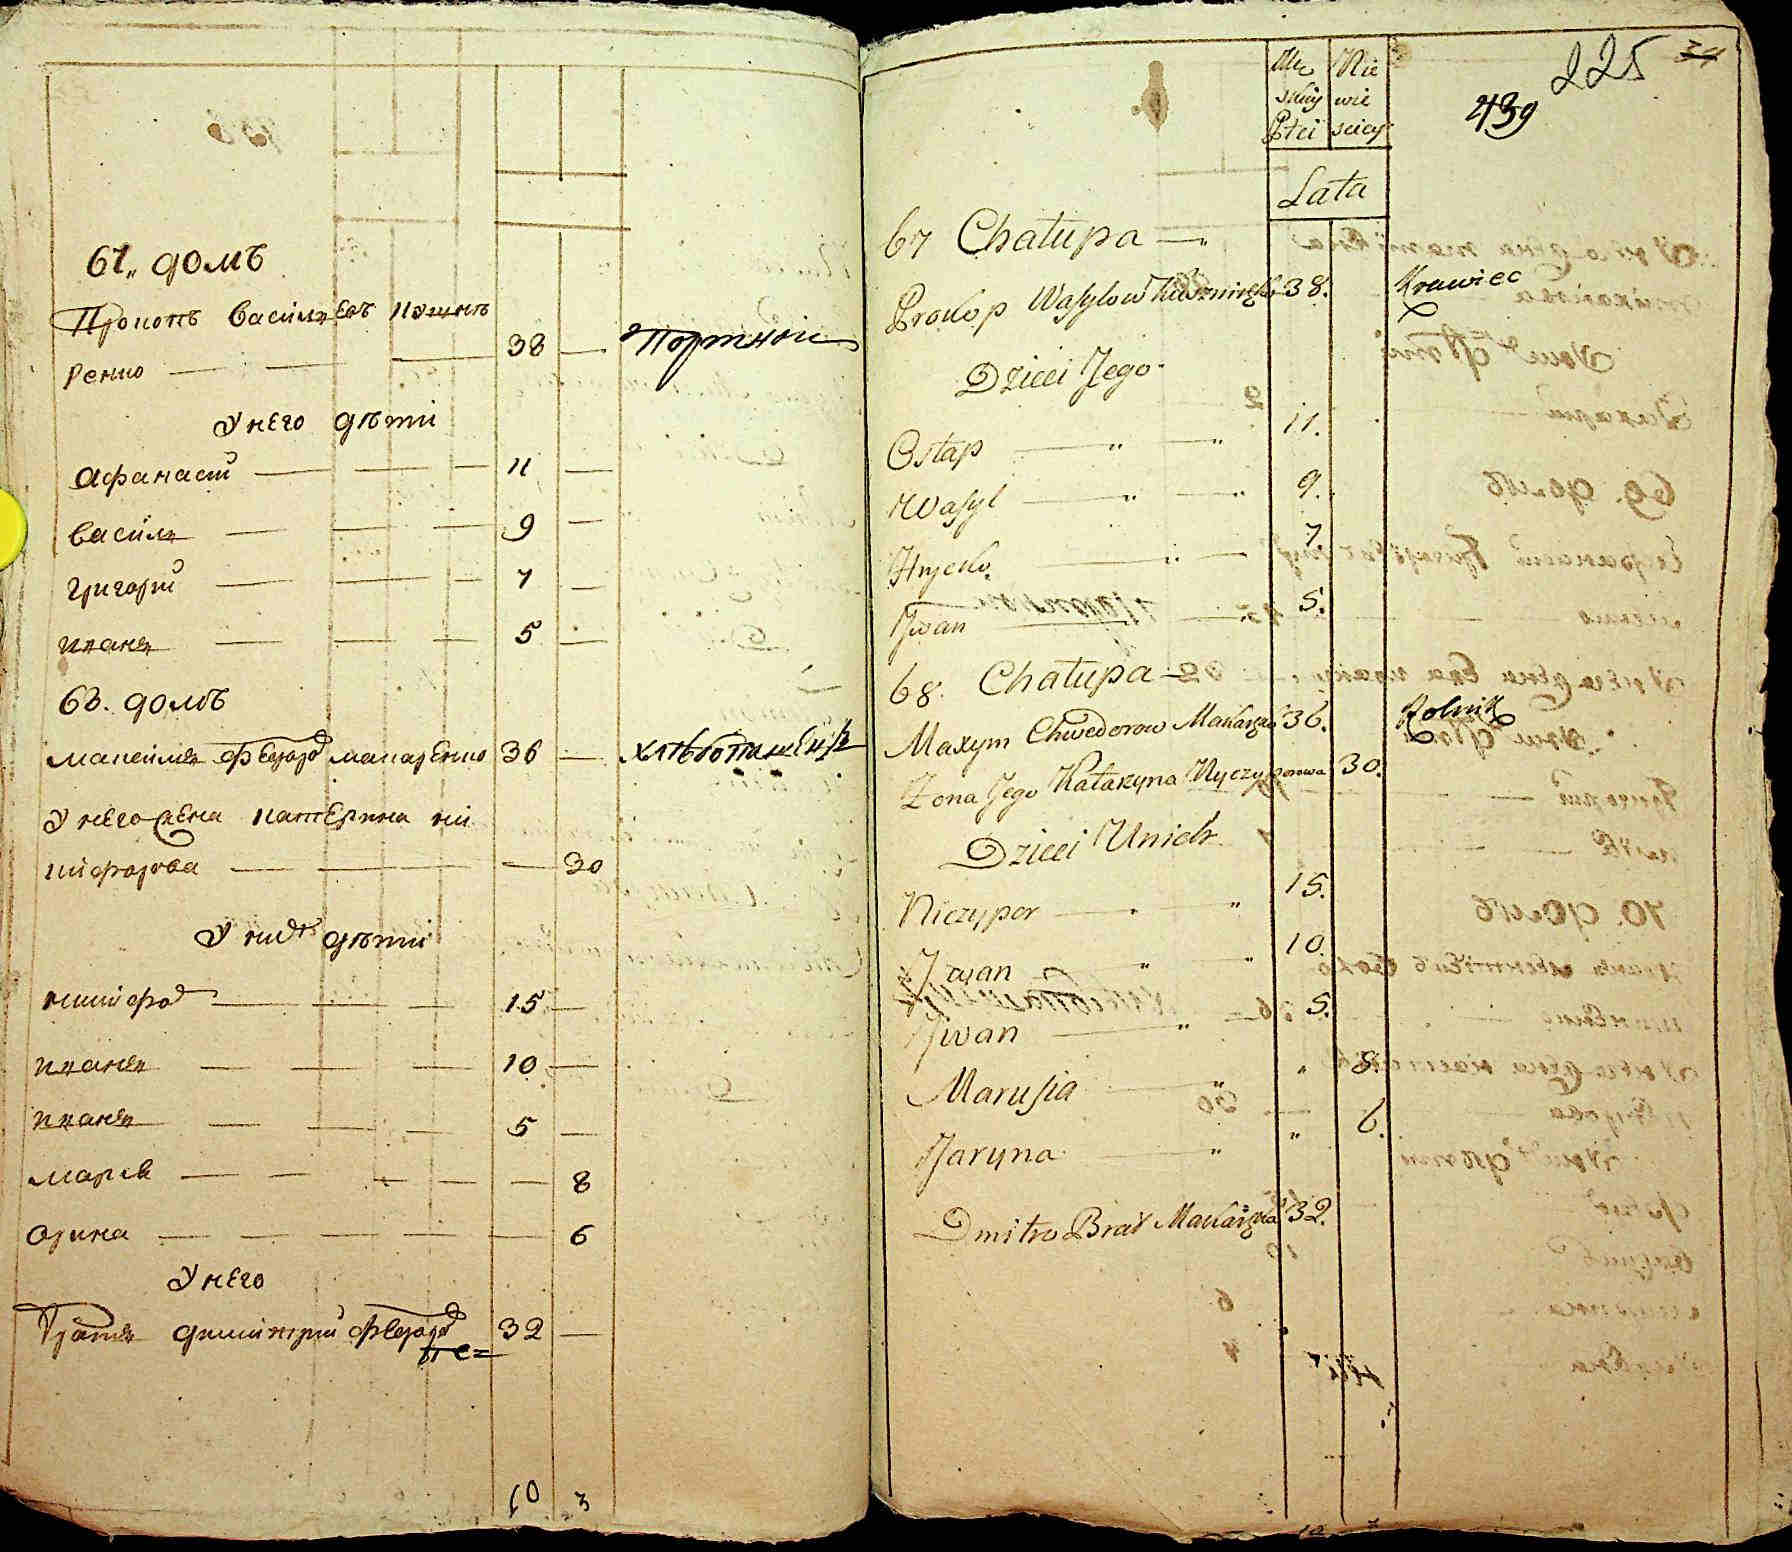 67„ домъ
Прокопъ Василь€въ Кушнѣ
ренко — — — 38 — Портной
У него дѣти
Афанасій — — — 11 —
Василь — — — 9 —
Григорій — — — 7 —
Иванъ — — — 5 —
68. домъ
Максимъ Федоровъ Макаренко 36 — хлѣбопашецъ
У него жена Катерина ни
кифорова — — — 30
У нихъ дѣти
никифоръ — — — 15 —
Иванъ — — — 10 —
Иванъ — — — 5 —
Марья — — — 8
Орина — — — 6
У него
Братъ Димитрій Федоровъ 32 —
10 3
225 34
439
Mę Nie
skiey wie
Płci sciey
Lata
67 Chałupa —
Prokop Wasylow 38. Krawiec
Dzieci Jego
Ostap — „ — „ 11.
Wasyl — „ — „ 9.
Hryćko — „ — 7
Jwan — 5.
68. Chałupa —
Maxym Chwedorow Makarenko 36. Rolnik
Zona Jego Katarzyna Nyczyporowa 30.
Dzieci Unich
Niczypor — „ 15.
Jwan „ „ 10.
Jwan — „ 5.
Marusia — „ „ 8.
Jaryna — „ „ 6.
Dmitro Brat Makarenka 32.